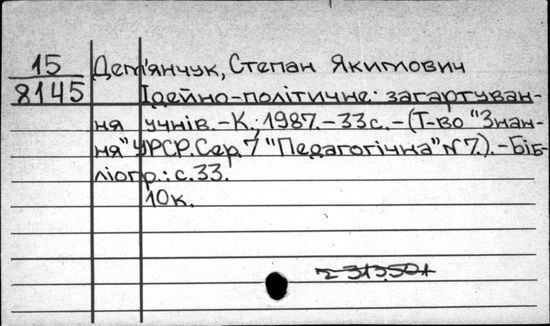 15
8145
Дем'янчук, Степан Якимович
Ідейно-політичне загартуван-
ня учнів. - К., 1987. - 33с. - (Т-во "Знан-
ня" УРСР. Сер. 7 "Педагогічна" № 7). - Біб-
ліогр.: с. 33.
10к.